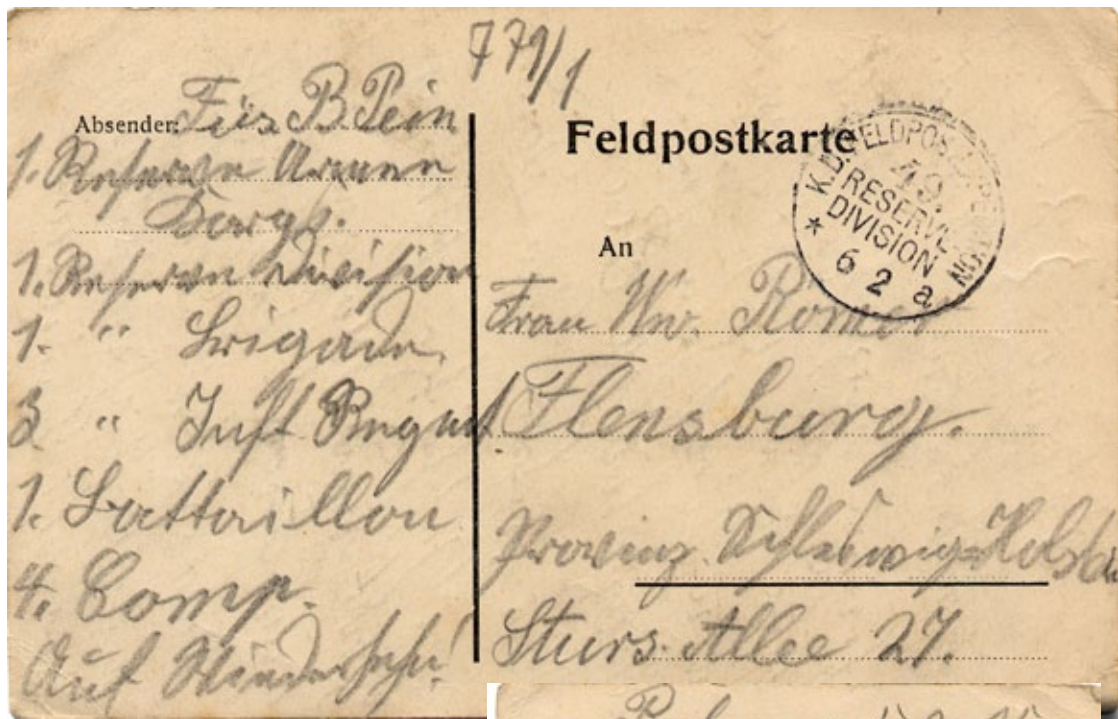 779/1
Absender: Füs. B Pein
1. Reserve Armee
Korps.
1. Reserve Division
1. " Brigade
3 " Inft Regmt
1. Battaillon
4. Comp.
Auf Wiedersehn!
Feldpostkarte
K.D. FELDPOST
49.
RESERVE
DIVISION
* 6 2 a
An
Frau Ww. Römer
Flensburg.
Provinz Schleswig-Holstein
Sturs. Allee 27.